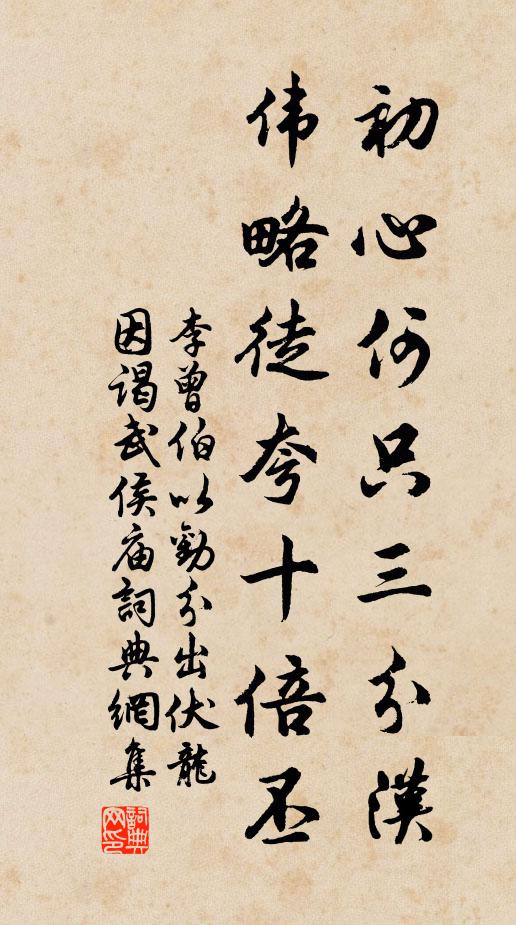 初心何只三分漢
伟略徒夸十倍丕
李曾伯以勸分出伏龍
因谒武侯庙詞典網集
詞典网印